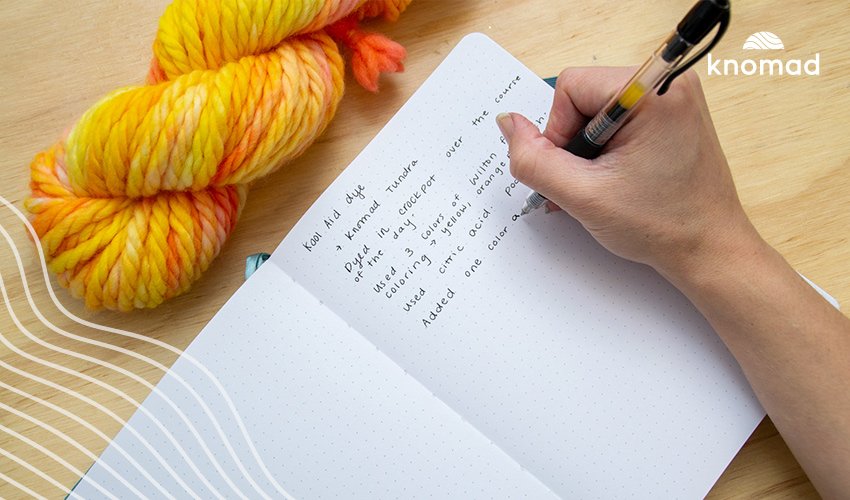 knomad
Kool Aid dye
→ Knomad Tundra
Dyed in crockpot over the course
of the day.
Used 3 colors of Wilton
coloring → yellow, orange
Used citric acid.
Added one color